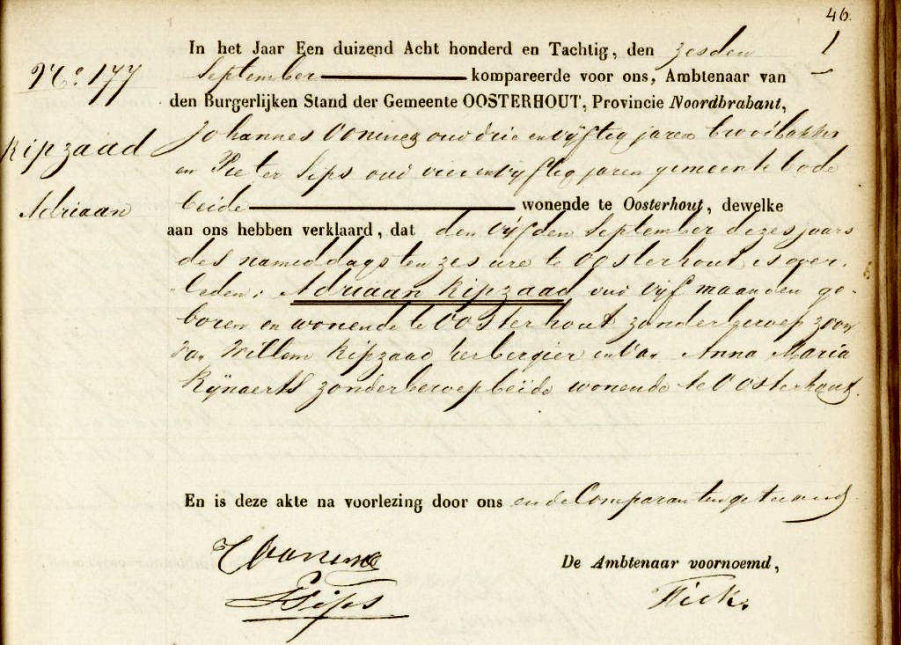 46.
In het Jaar Een duizend Acht honderd en Tachtig, den zesden
No. 177
September kompareerde voor ons, Ambtenaar van
den Burgerlijken Stand der Gemeente OOSTERHOUT, Provincie Noordbrabant,
Kipzaad
Adriaan
Johannes oud drie en vijftig jaren broodbakker
en Pieter Seps oud vier en vijftig jaren gemeente bode
beide wonende te Oosterhout, dewelke
aan ons hebben verklaard, dat den vijfden September dezes jaars
des namiddags ten zes ure te Oosterhout is over-
leden: Adriaan Kipzaad oud vijf maanden ge-
boren en wonende te Oosterhout zonder beroep zoon
van Willem Kipzaad herbergier en van Anna Maria
Rijnaerts zonder beroep beide wonende te Oosterhout.
En is deze akte na voorlezing door ons en de Comparanten geteekend.
De Ambtenaar voornoemd,